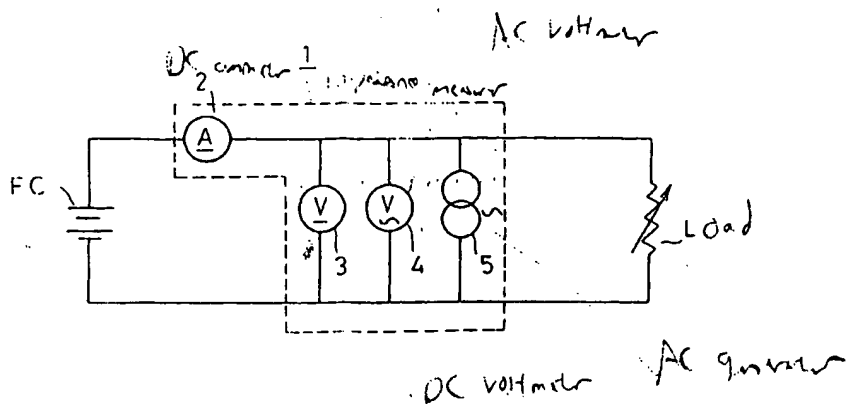 AC voltmeter
DC ammeter 1
2 impedance measur
A
FC
V
V
3
4
5
Load
DC voltmeter
AC generator